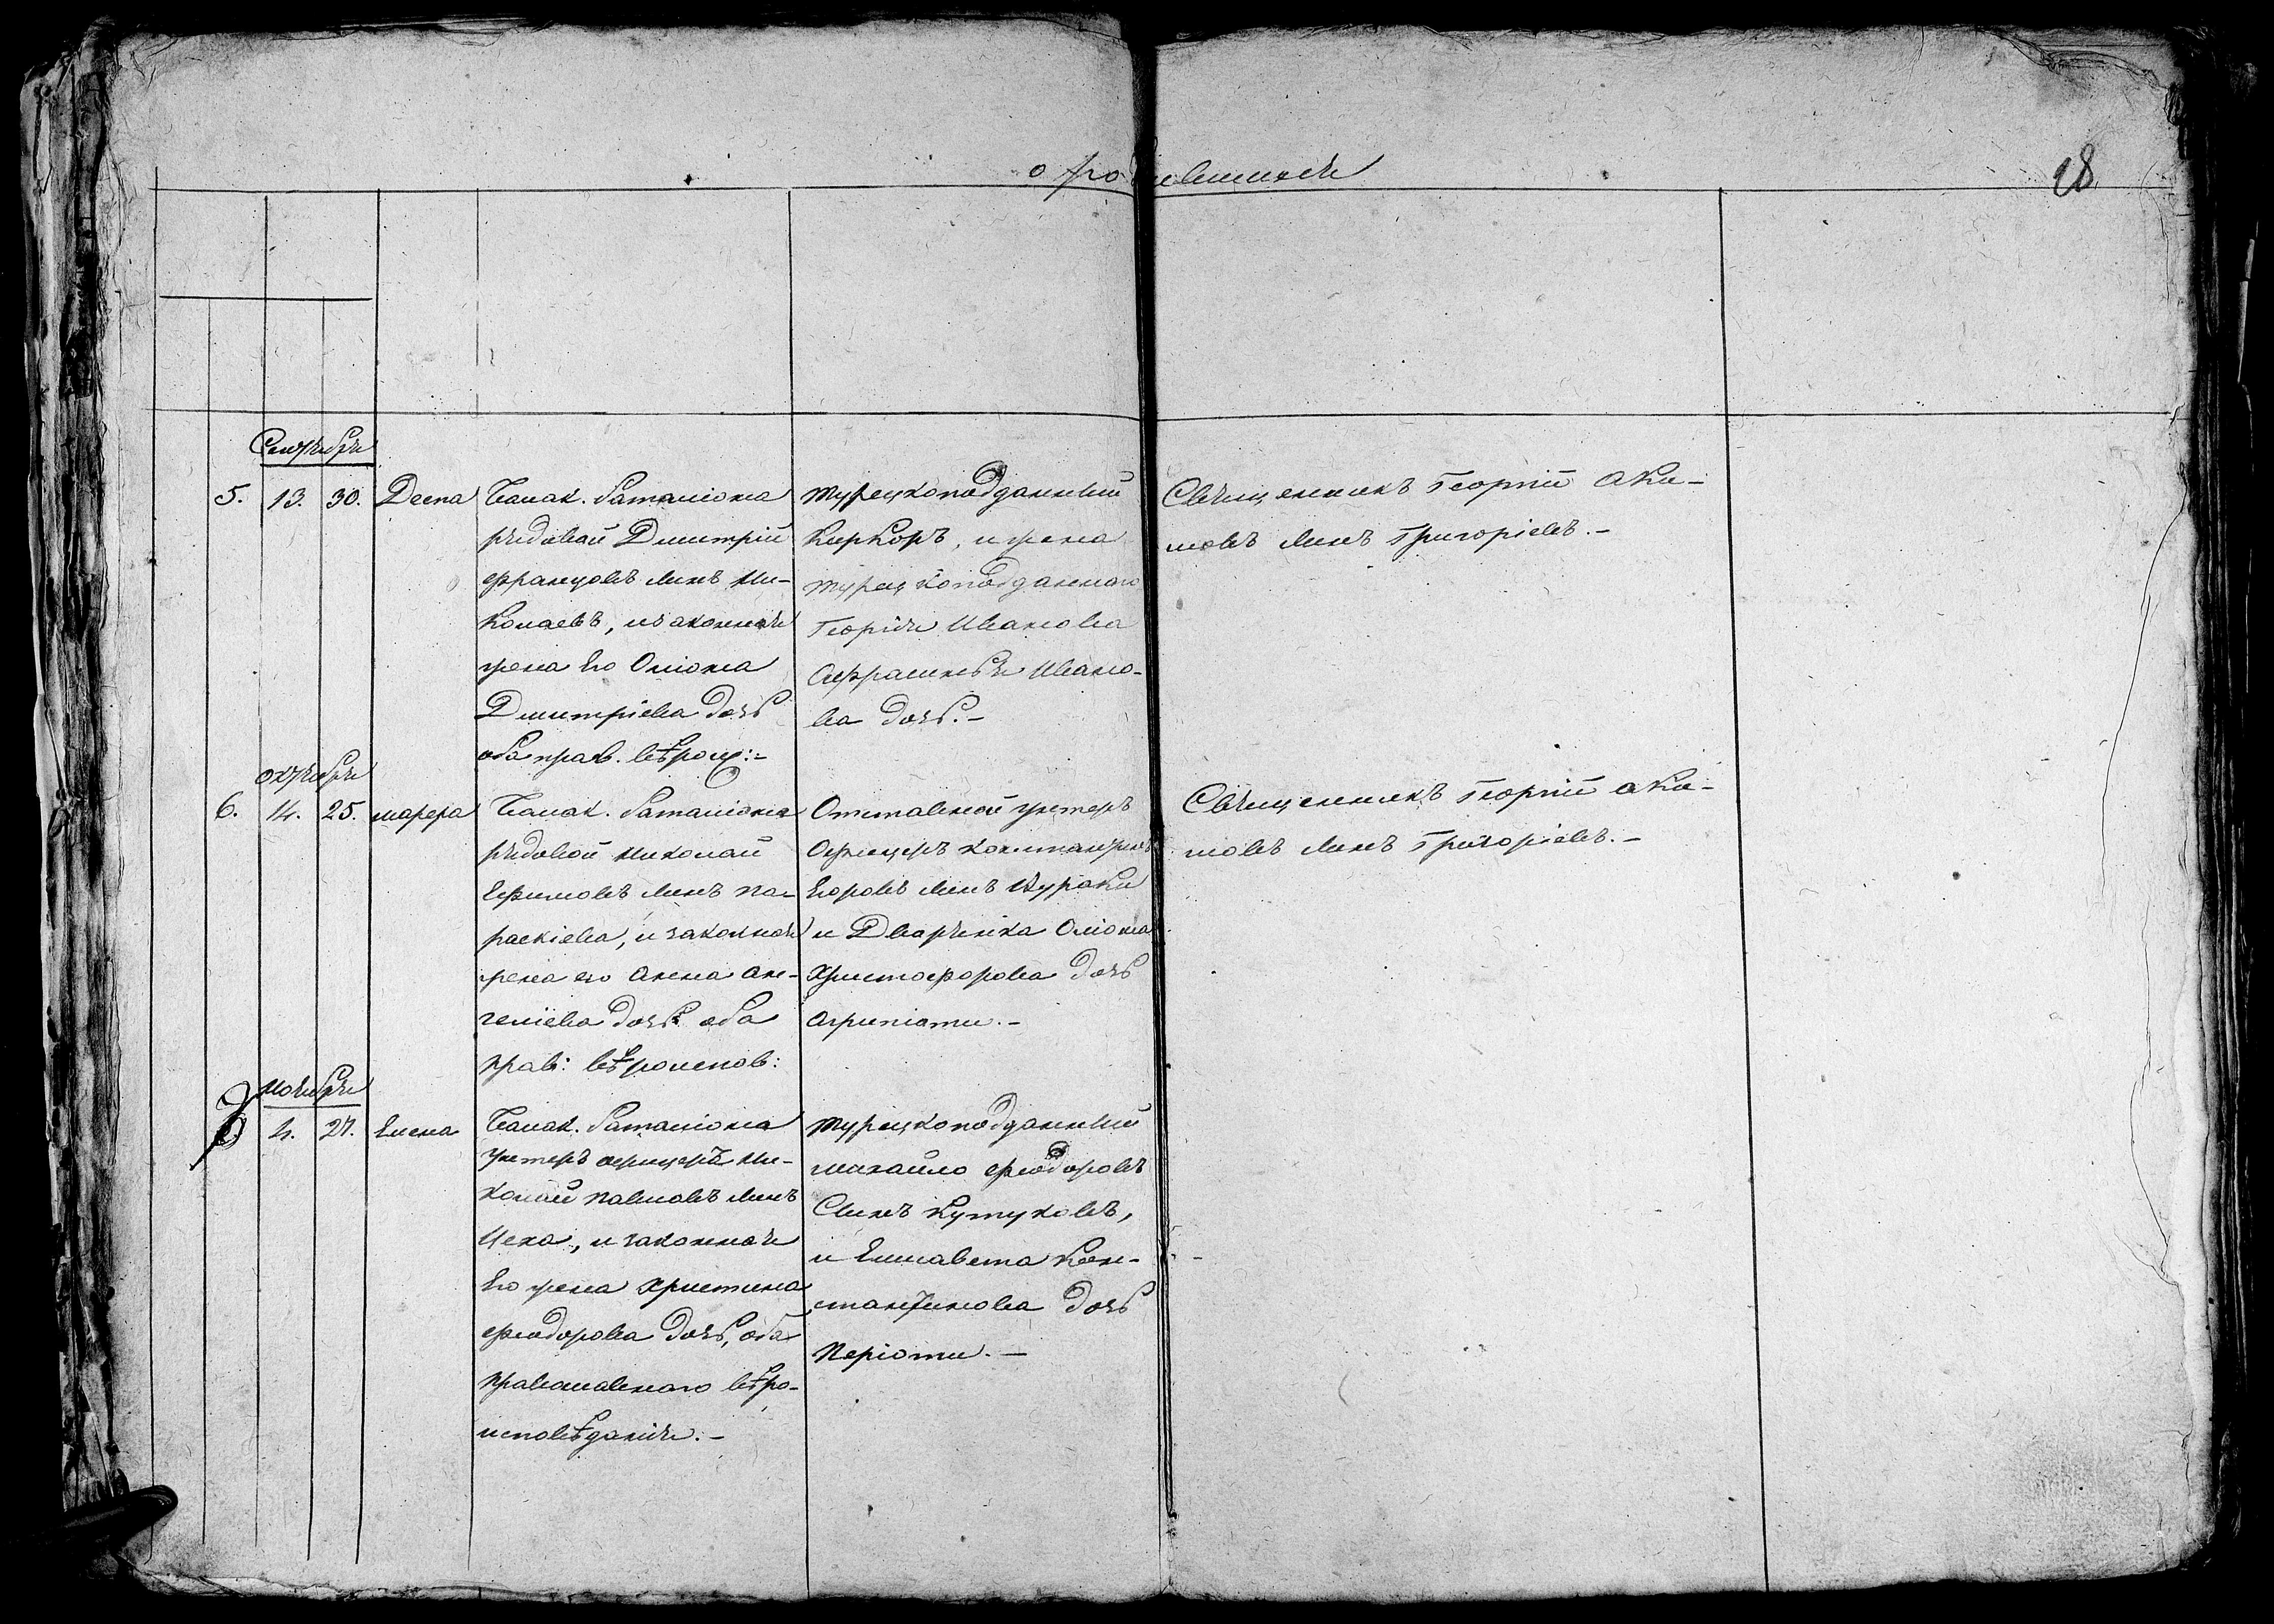 о родившихся
18
Сентября
5. 13. 30. Деспа
Балак. Баталіона
рядовой Дмитрій
Французовъ сынъ Ни-
колаевъ, изаконная
жена Его Оміона
Дмитріева дочь
оба прав. вѣроис:-
турецкоподданный
Киркоръ, и жена
турецкоподданнаго
Георгія Иванова
Афрасинья Ивано-
ва дочь.-
Священникъ Георгій Аки-
мовъ сынъ Григоріевъ.-
октября
6. 14. 25. марфа
Балак. Баталіона
рядовой Николай
Ефимовъ сынъ Па-
раскіева, и законная
жена его Анна Ан-
геліева дочь оба
прав: вѣроиспов:
Отставной унтеръ
Офицеръ Константинъ
Егоровъ сынъ Кураки
и Дворянка Оміона
Христофорова дочь
Агрипіоти.-
Священникъ Георгій Аки-
мовъ сынъ Григоріевъ.-
Ноября
7 4. 27. Елена
Балак. Баталіона
унтеръ офицеръ Ни-
колай Павловъ сынъ
Цека, и законная
Его жена Христина
Феодорова дочь, оба
Православнаго вѣро-
исповѣданія.-
турецкоподданный
михайло Феодоровъ
Сынъ Кутуковъ,
и Елисавета Кон-
стантинова дочь
Перiоти.-